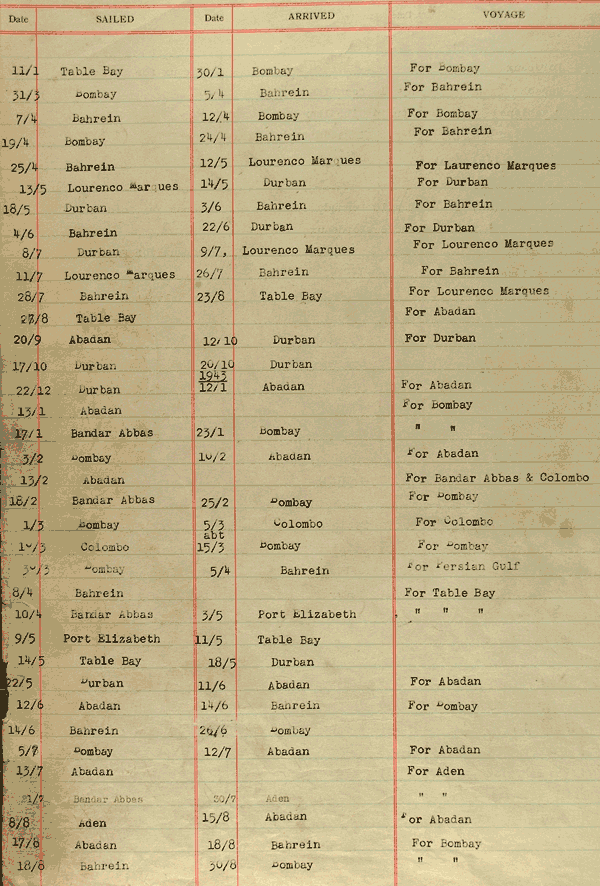 Date SAILED Date ARRIVED VOYAGE
11/1 Table Bay 30/1 Bombay For Bombay
31/3 Bombay 5/4 Bahrein For Bahrein
7/4 Bahrein 12/4 Bombay For Bombay
19/4 Bombay 24/4 Bahrein For Bahrein
25/4 Bahrein 12/5 Lourenco Marques For Laurenco Marques
13/5 Lourenco Marques 14/5 Durban For Durban
18/5 Durban 3/6 Bahrein For Bahrein
4/6 Bahrein 22/6 Durban For Durban
8/7 Durban 9/7, Lourenco Marques For Lourenco Marques
11/7 Lourenco Marques 26/7 Bahrein For Bahrein
28/7 Bahrein 23/8 Table Bay For Lourenco Marques
Table Bay For Abadan
20/9 Abadan 12/10 Durban For Durban
17/10 Durban 20/10 Durban
1943
22/12 Durban 12/1 Abadan For Abadan
13/1 Abadan For Bombay
17/1 Bandar Abbas 23/1 Bombay " "
3/2 Bombay 10/2 Abadan For Abadan
13/2 Abadan For Bandar Abbas & Colombo
18/2 Bandar Abbas 25/2 Bombay For Bombay
1/3 Bombay 5/3 Colombo For Colombo
abt
10/3 Colombo 15/3 Bombay For Bombay
30/3 Bombay 5/4 Bahrein For Persian Gulf
8/4 Bahrein For Table Bay
10/4 Bandar Abbas 3/5 Port Elizabeth " " "
9/5 Port Elizabeth 11/5 Table Bay
14/5 Table Bay 18/5 Durban
22/5 Durban 11/6 Abadan For Abadan
12/6 Abadan 14/6 Bahrein For Bombay
14/6 Bahrein 20/6 Bombay
5/7 Bombay 12/7 Abadan For Abadan
13/7 Abadan For Aden
21/7 Bandar Abbas 30/7 Aden " "
8/8 Aden 15/8 Abadan For Abadan
17/8 Abadan 18/8 Bahrein For Bombay
18/8 Bahrein 30/8 Bombay " "